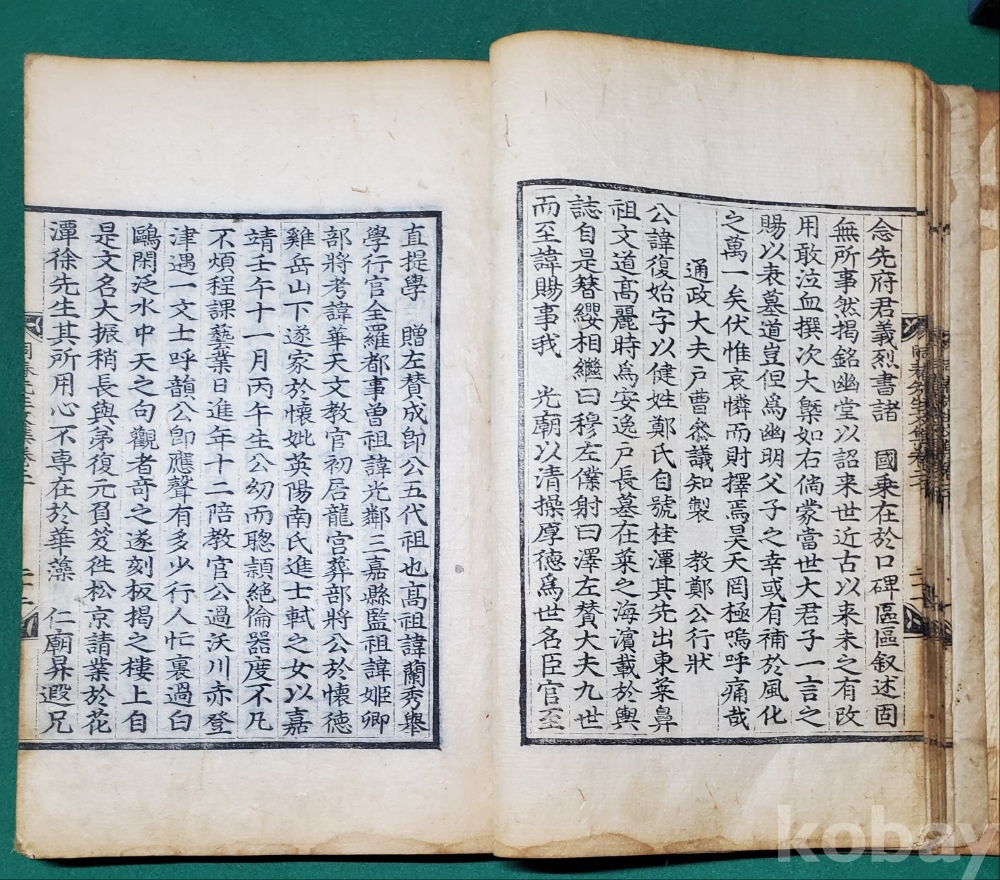 念先府君義烈書諸 國乘在於口碑區區叙述固
無所事然揭銘幽堂以詔来世近古以来未之有改
用敢泣血撰次大槩如右倘蒙當世大君子一言之
賜以表墓道豈但爲幽明父子之幸或有補於風化
之萬一矣伏惟哀憐而財擇焉昊天罔極嗚呼痛哉
通政大夫戶曹叅議知製 教鄭公行狀
公諱復始字以健姓鄭氏自號桂潭其先出東萊鼻
祖文道髙麗時爲安逸戶長墓在萊之海濱載於輿
誌自是簪纓相繼曰穆左僕射曰澤左賛大夫九世
而至諱賜事我 光廟以清操厚德爲世名臣官至
直提學 贈左賛成卽公五代祖也髙祖諱蘭秀舉
學行官全羅都事曾祖諱光鄰三嘉縣監祖諱姬卿
部將考諱華天文教官初居龍宮葬部將公於懷德
雞岳山下遂家於懷妣英陽南氏進士軾之女以嘉
靖壬午十一月丙午生公幼而聰頴絶倫器度不凡
不煩程課藝業日進年十二陪教官公過沃川赤登
津遇一文士呼韻公卽應聲有多少行人忙裏過白
鷗閑泛水中天之句觀者奇之遂刻板揭之樓上自
是文名大振稍長與弟復元負笈徃松京請業於花
潭徐先生其所用心不專在於華藻 仁廟昇遐兄
同春先生文集卷二
二十
kobay